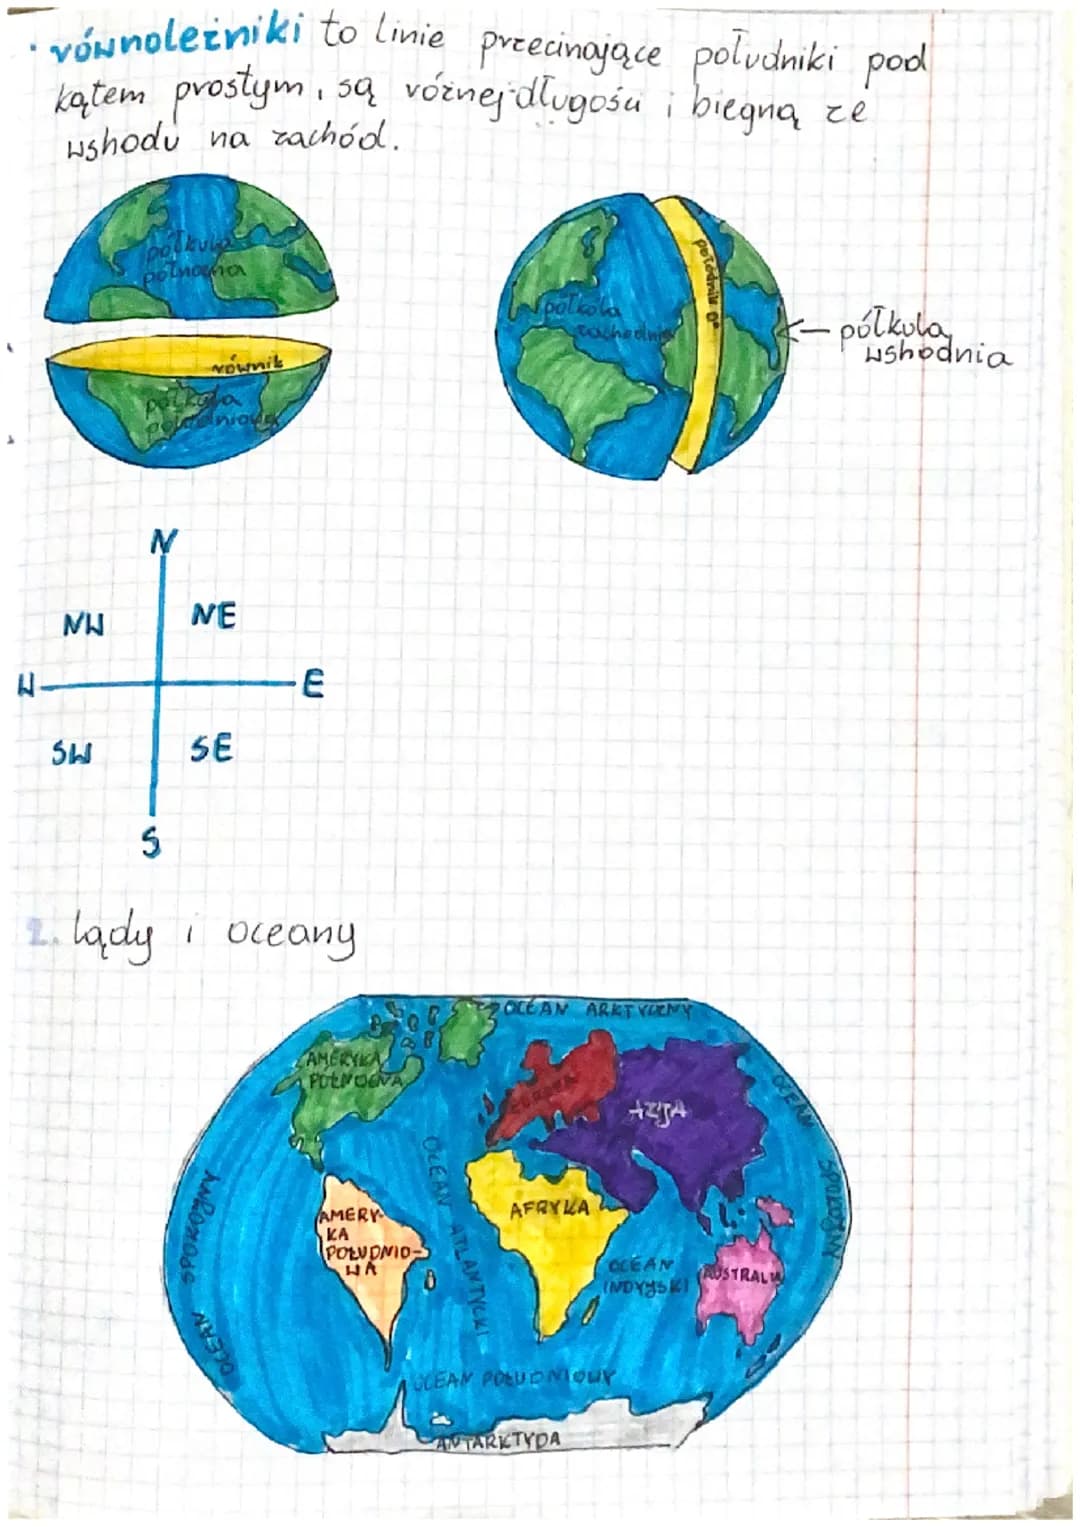 • równoleżniki to linie przecinające południki pod
kątem prostym, są różnej długości i biegną ze
wshodu na zachód.
półkula
północna
równik
półkula
południowa
półkula
zachodnia
południk 0°
półkula
wshodnia
N
NW
NE
W
E
SW
SE
S
2. lądy i oceany
OCEAN ARKTYCZNY
AMERYKA
PÓŁNOCNA
EUROPA
AZJA
OCEAN SPOKOJNY
OCEAN SPOKOJNY
OCEAN ATLANTYCKI
AFRYKA
AMERY-
KA
POŁUDNIO-
WA
OCEAN
INDYJSKI
AUSTRALIA
OCEAN POŁUDNIOWY
ANTARKTYDA